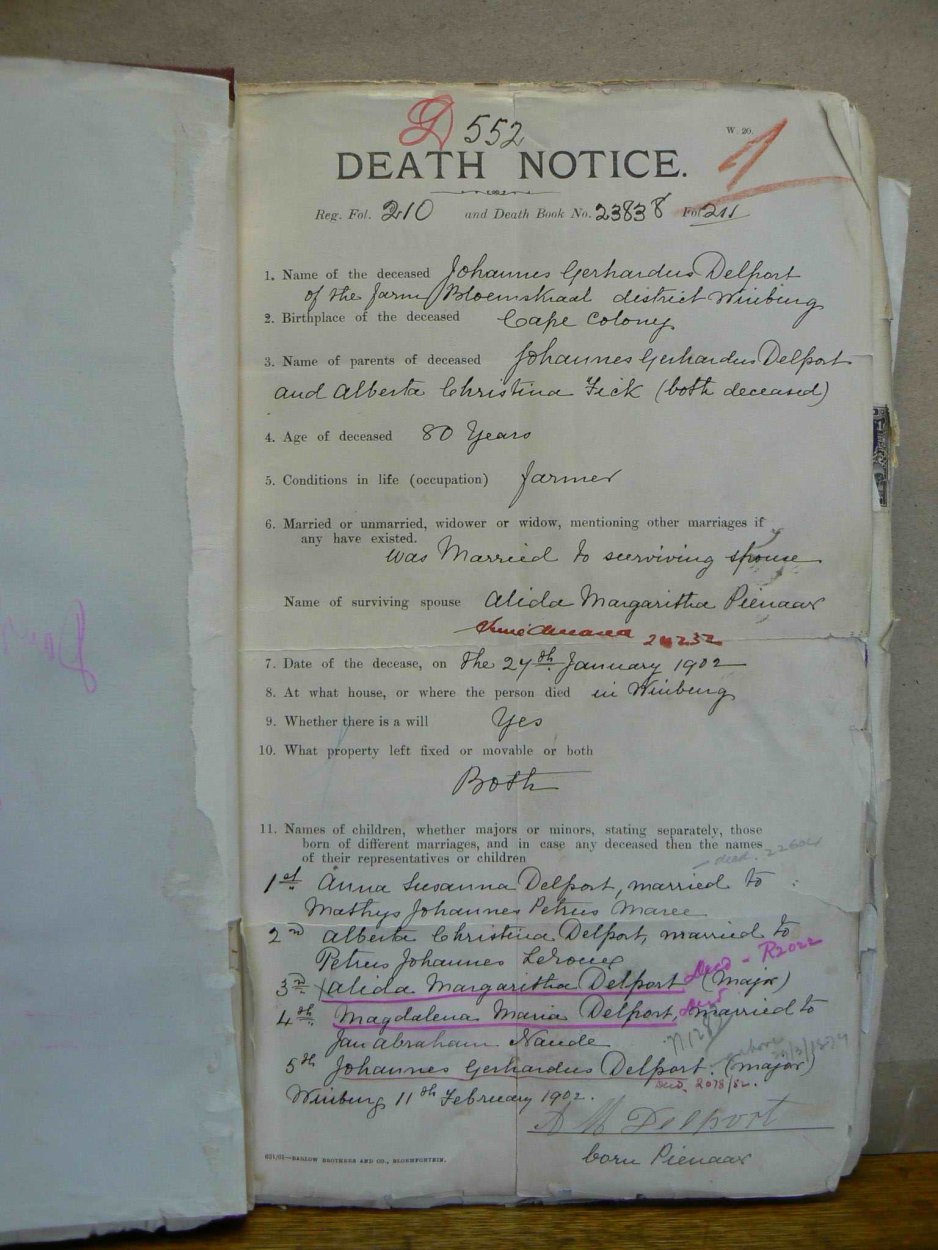 D 552
W. 20.
1
DEATH NOTICE.
Reg. Fol. 210 and Death Book No. 23838 Fol 211
1. Name of the deceased Johannes Gerhardus Delport
of the farm Bloemskraal district Winburg
2. Birthplace of the deceased Cape Colony
3. Name of parents of deceased Johannes Gerhardus Delport
and Alberta Christina Fick (both deceased)
4. Age of deceased 80 Years
5. Conditions in life (occupation) farmer
6. Married or unmarried, widower or widow, mentioning other marriages if
any have existed.
was Married to surviving spouse
Name of surviving spouse Alida Margaritha Pienaar
7. Date of the decease, on the 24th January 1902
8. At what house, or where the person died in Winburg
9. Whether there is a will Yes
10. What property left fixed or movable or both
Both
11. Names of children, whether majors or minors, stating separately, those
born of different marriages, and in case any deceased then the names
of their representatives or children
1st Anna Susanna Delport, married to
Mathys Johannes Petrus Maree
2nd Alberta Christina Delport, married to
Petrus Johannes Leroux
3rd Alida Margaritha Delport (Major) Decd - R2022
4th Magdalena Maria Delport, married to
Jan Abraham Naude
5th Johannes Gerhardus Delport. (major)
Decd 2078/52.
Winburg 11th February 1902.
A M Delport
born Pienaar
631/01—BARLOW BROTHERS AND CO., BLOEMFONTEIN.